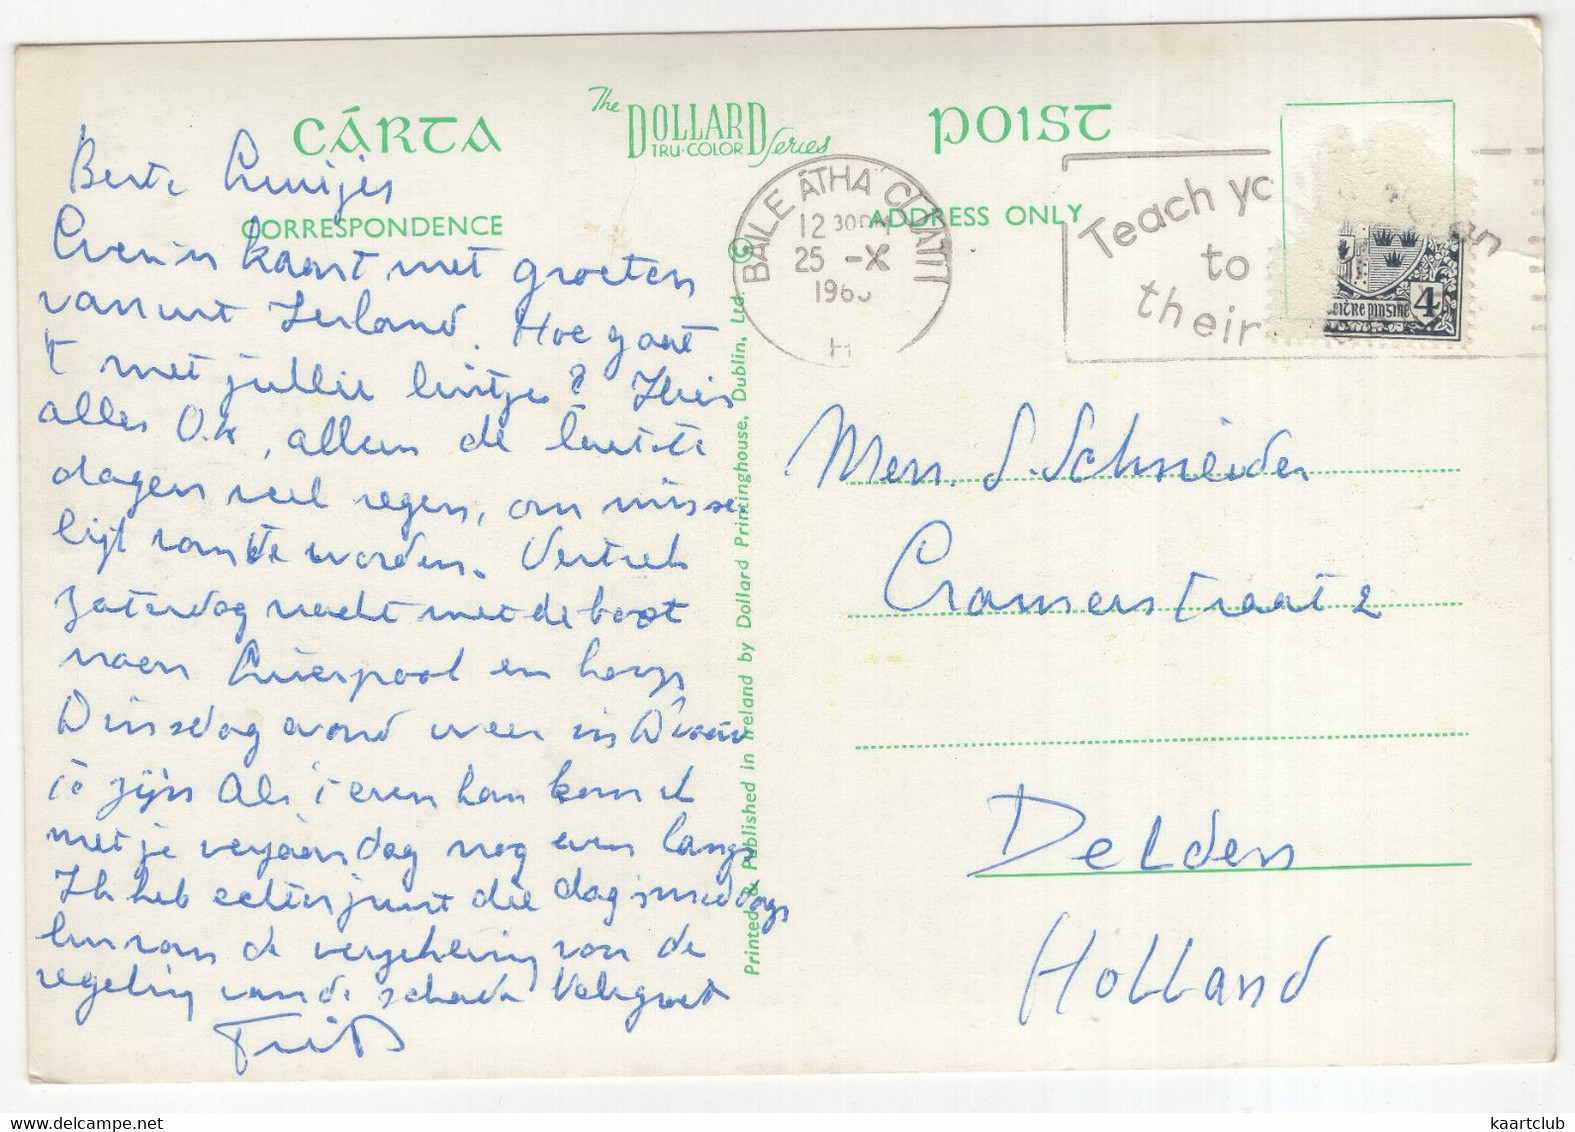 CÁRTA
The DOLLARD Series
TRU-COLOR
POIST
CORRESPONDENCE
ADDRESS ONLY
BAILE ÁTHA CLIATH
12 30
25 -X
196
Teach yo
to
their
4
Beste Luuijes
Even'n kaart met groeten
vanuit Ierland. Hoe gaat
't met jullie luitjes? Hier
alles O.K, alleen de laatste
dagen veel regen, om misse
lijk van te worden. Vertrek
zaterdag nacht met de boot
naar Liverpool en hoop
Dinsdag avond weer in
te zijn Als 't even kan kom ik
met je verjaardag nog even langs
Ik heb echter juist die dag smiddags
van de
regeling van de schade Veel groet
Frits
Printed & Published in Ireland by Dollard Printinghouse, Dublin, Ltd. ©
Men. S. Schneider
Cramerstraat 2
Delden
Holland
kaartclub